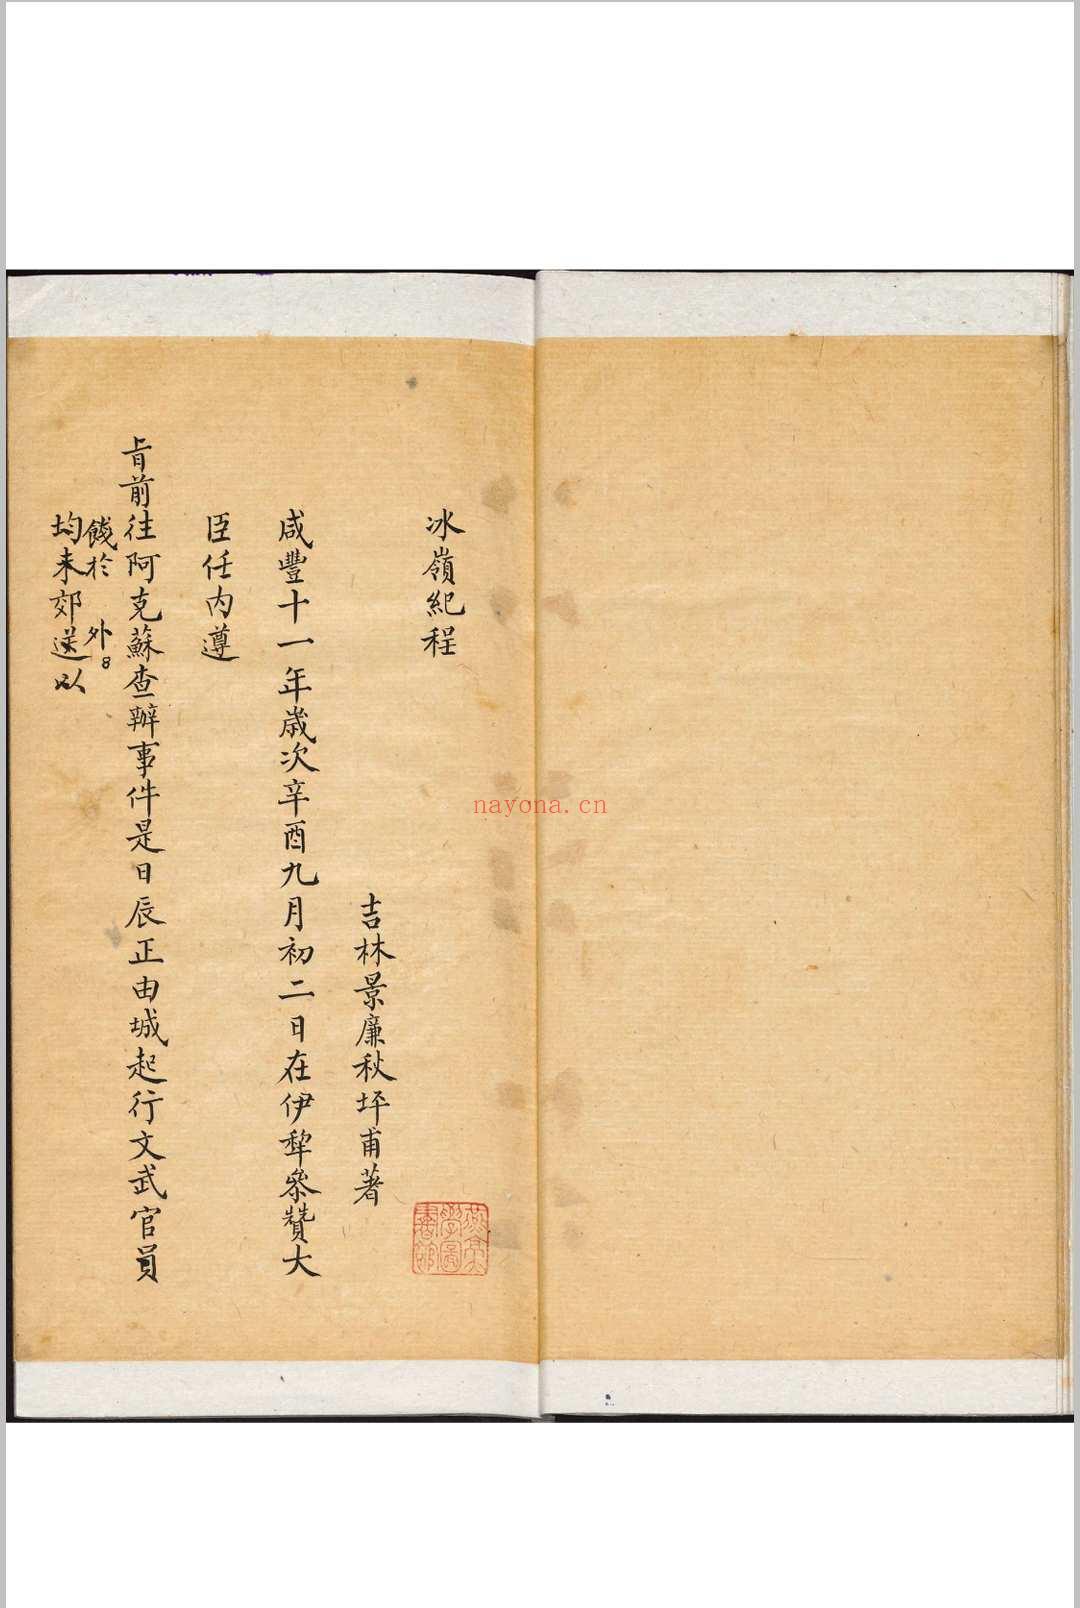 冰嶺紀程
吉林景廉秋坪甫著
咸豐十一年歲次辛酉九月初二日在伊犂參贊大
臣任內遵
旨前往阿克蘇查辦事件是日辰正由城起行文武官員
餞於 外8
均来郊送以
nayona.cn